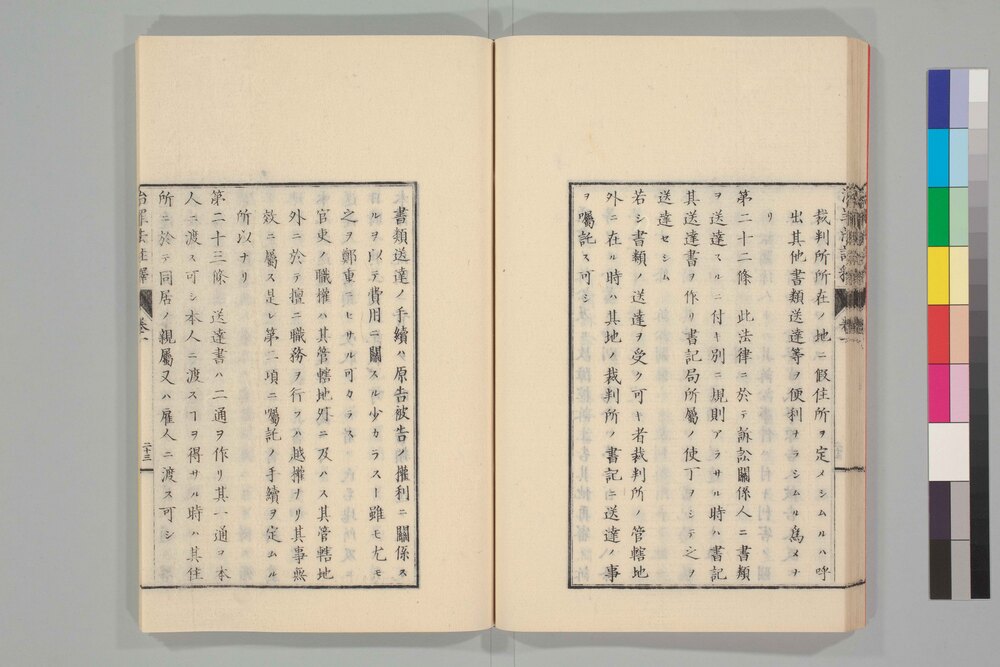 裁判所所在ノ地ニ假住所ヲ定メシムルハ呼
出其他書類送達等ヲ便利ナラシムル爲メナ
リ
第二十二條 此法律ニ於テ訴訟關係人ニ書類
ヲ送達スルニ付キ別ニ規則アラサル時ハ書記
其送達書ヲ作リ書記局所屬ノ使丁ヲシテ之ヲ
送達セシム
若シ書類ノ送達ヲ受ク可キ者裁判所ノ管轄地
外ニ在ル時ハ其地ノ裁判所ノ書記ニ送達ノ事
ヲ囑託ス可シ
書類送達ノ手續ハ原告被告ノ權利ニ關係ス
ルヲ以テ費用ニ關スル少カラスト雖モ尤モ
之ヲ鄭重ニセサル可カラス
官吏ノ職權ハ其管轄地外ニ及ハス其管轄地
外ニ於テ擅ニ職務ヲ行フハ越權ナリ其事無
效ニ屬ス是レ第二項ニ囑託ノ手續ヲ定ムル
所以ナリ
第二十三條 送達書ハ二通ヲ作リ其一通ヲ本
人ニ渡ス可シ本人ニ渡スヿヲ得サル時ハ其住
所ニ於テ同居ノ親屬又ハ雇人ニ渡ス可シ
治罪法註釋 卷一 二十三